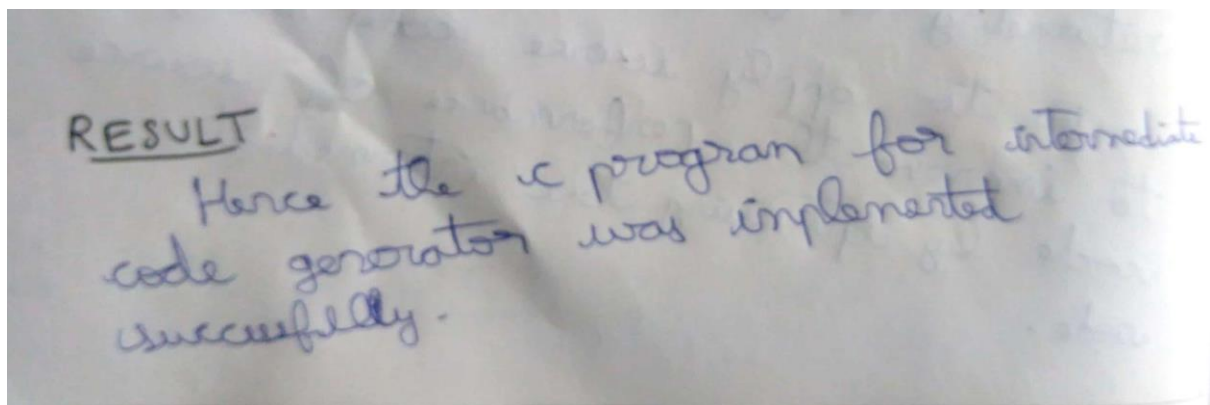 RESULT.
Hence the c program for intermediate
code generator was implemented
successfully.